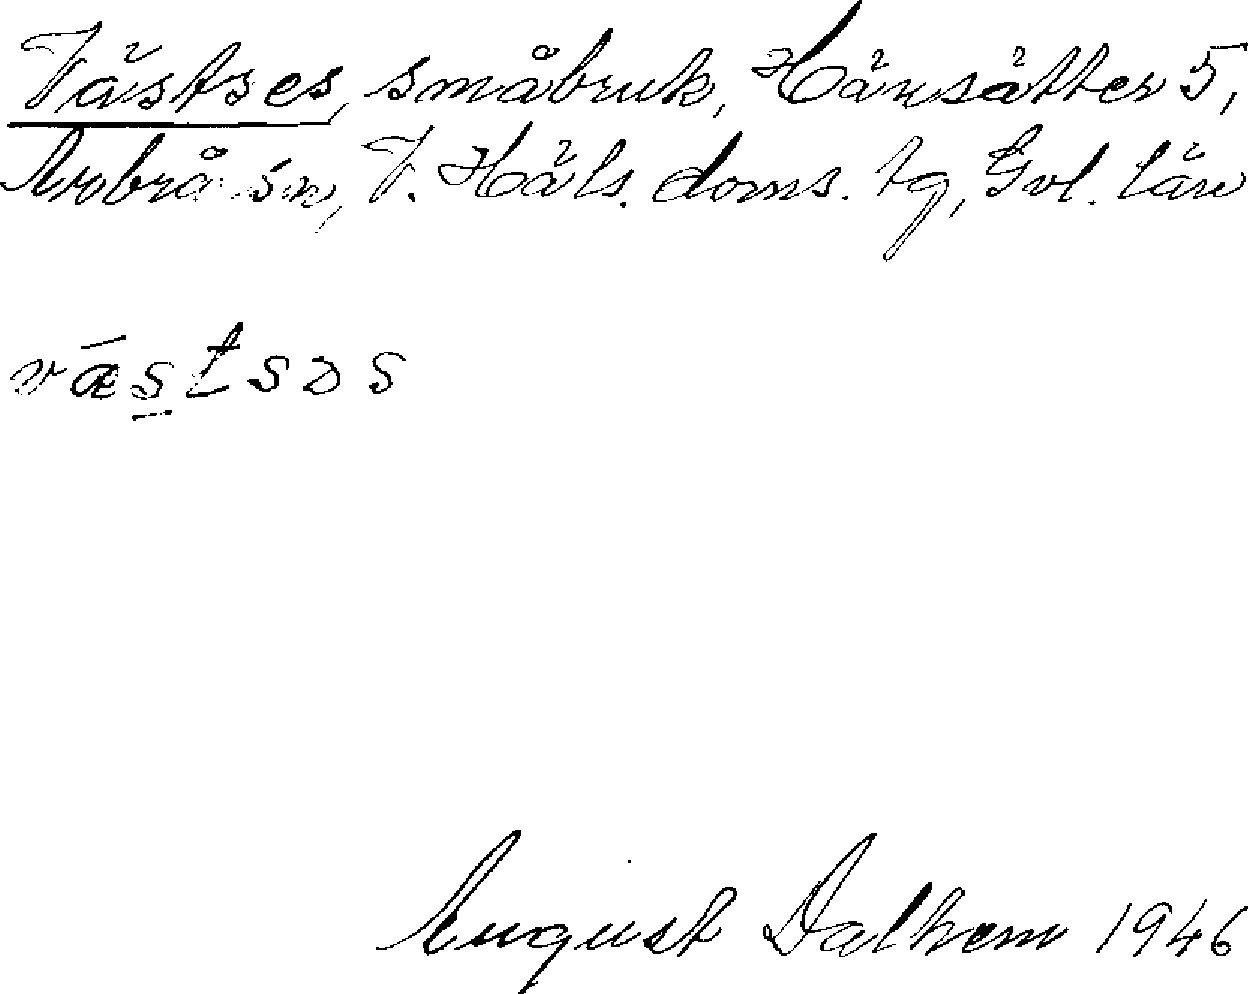 Västses, småbruk, Hänsätter 5,
Arbrå sn, V. Häls. doms. tg, Gvl. län
væ̅s̲tsɔs
August Dalhem 1946